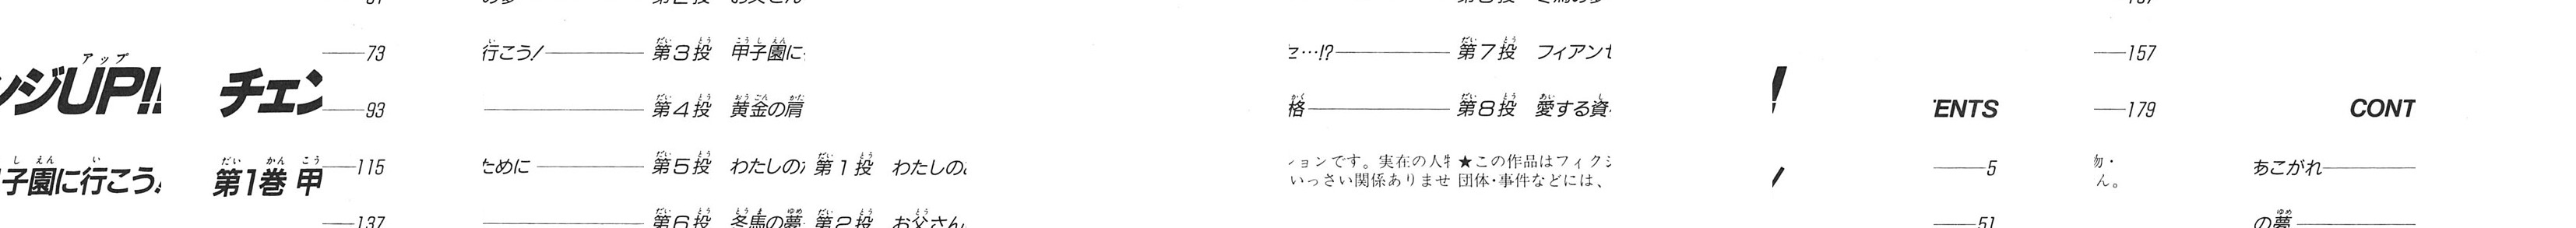 アップ
ンジUP!!
子園に行こう!
チェン
第1巻 甲
73
93
115
137
行こう!
ために
第3投 甲子園に
第4投 黄金の肩
第5投 わたしの
第6投 冬馬の夢
第1投 わたしの
第2投 お父さん
…!?
格
ョンです。実在の人
いっさい関係ありませ
第7投 フィアン
第8投 愛する資
★この作品はフィク
団体・事件などには、
!
ENTS
5
51
157
179
・
ん。
CONT
あこがれ
の夢